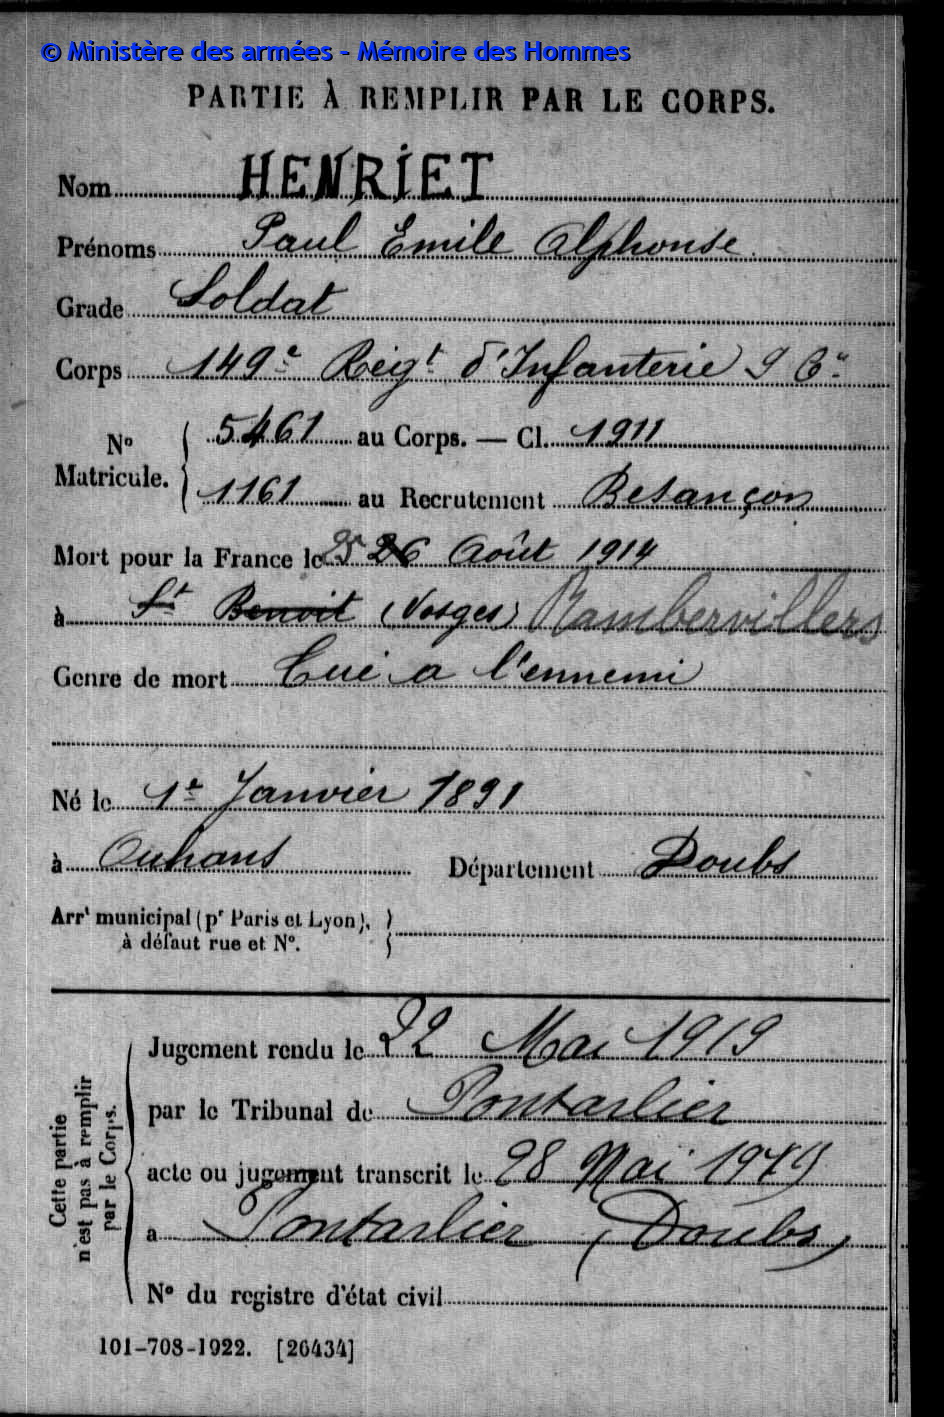 © Ministère des armées - Mémoire des Hommes
PARTIE À REMPLIR PAR LE CORPS.
Nom HENRIET
Prénoms Paul Emile Alphonse
Grade Soldat
Corps 149e Régt d'Infanterie 9 Cie
N° Matricule. { 5461 au Corps. — Cl. 1911
1161 au Recrutement Besançon
Mort pour la France le 25 26 Août 1914
à St Benoit (Vosges) Rambervillers
Genre de mort Tué a l'ennemi
Né le 1e Janvier 1891
à Ouhans Département Doubs
Arrt municipal (pr Paris et Lyon), }
à défaut rue et N°.
Cette partie n'est pas à remplir par le Corps.
Jugement rendu le 22 Mai 1919
par le Tribunal de Pontarlier
acte ou jugement transcrit le 28 Mai 1919
a Pontarlier (Doubs)
N° du registre d'état civil
101-708-1922. [26434]